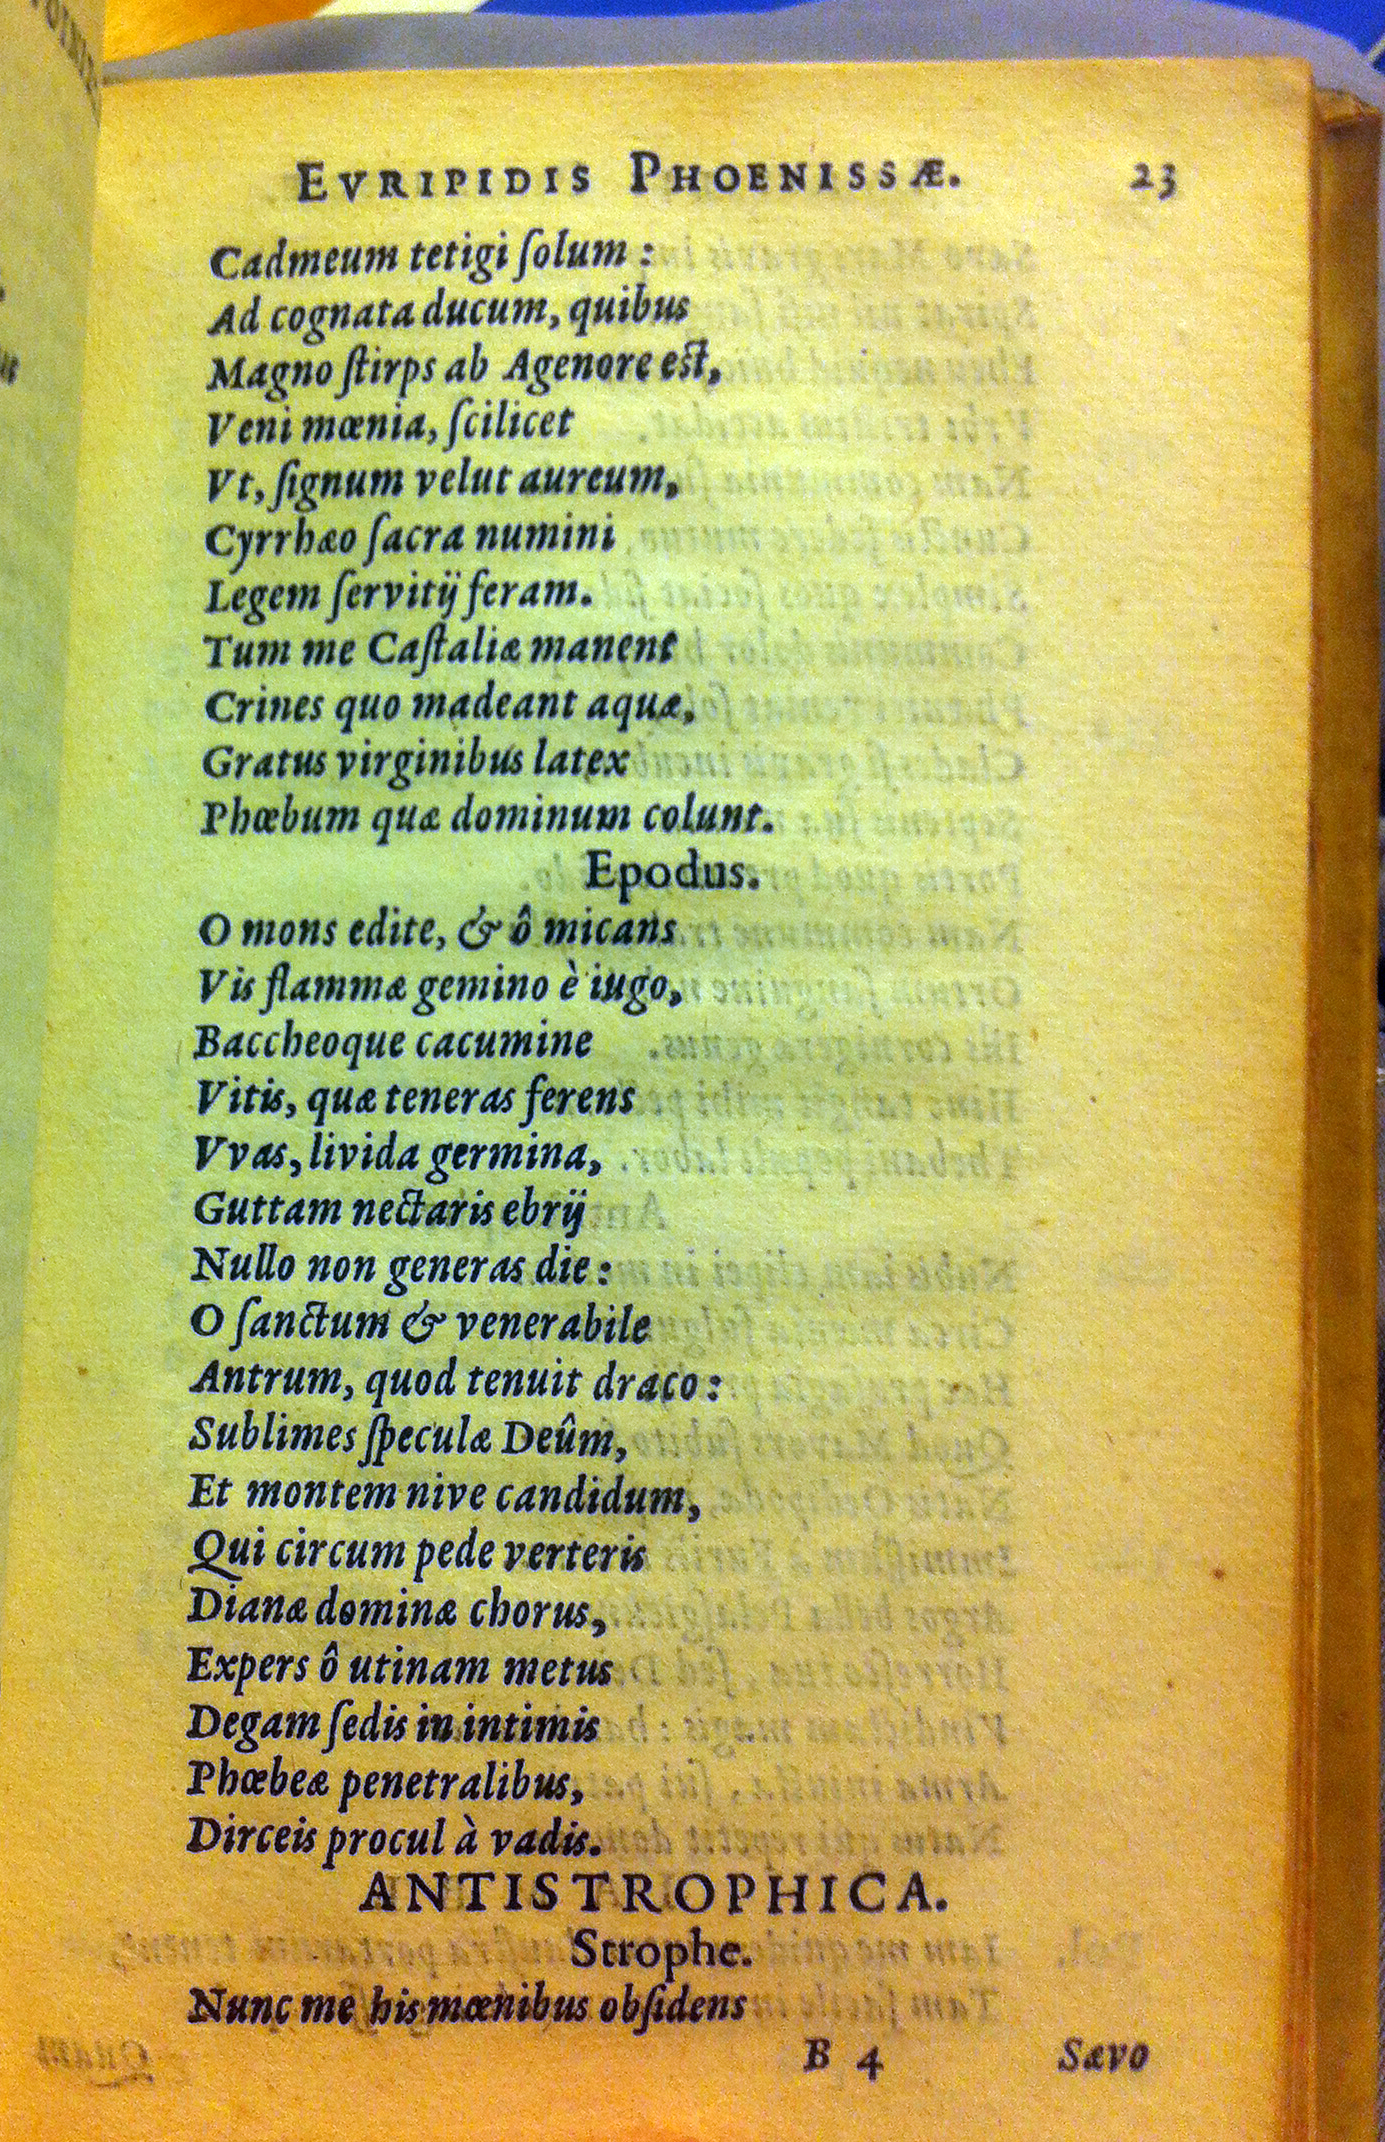 EVRIPIDIS PHOENISSÆ. 23
Cadmeum tetigi ſolum :
Ad cognata ducum, quibus
Magno ſtirps ab Agenore est,
Veni mœnia, ſcilicet
Vt, ſignum velut aureum,
Cyrrhæo ſacra numini
Legem ſervitij feram.
Tum me Caſtaliæ manent
Crines quo madeant aquæ,
Gratus virginibus latex
Phœbum quæ dominum colunt.
Epodus.
O mons edite, & ô micans
Vis flammæ gemino è iugo,
Baccheoque cacumine
Vitis, quæ teneras ferens
Vvas, livida germina,
Guttam nectaris ebrij
Nullo non generas die :
O ſanctum & venerabile
Antrum, quod tenuit draco :
Sublimes ſpeculæ Deûm,
Et montem nive candidum,
Qui circum pede verteris
Dianæ dominæ chorus,
Expers ô utinam metus
Degam ſedis in intimis
Phœbeæ penetralibus,
Dirceis procul à vadis.
ANTISTROPHICA.
Strophe.
Nunc me his mœnibus obſidens
B 4 Sævo